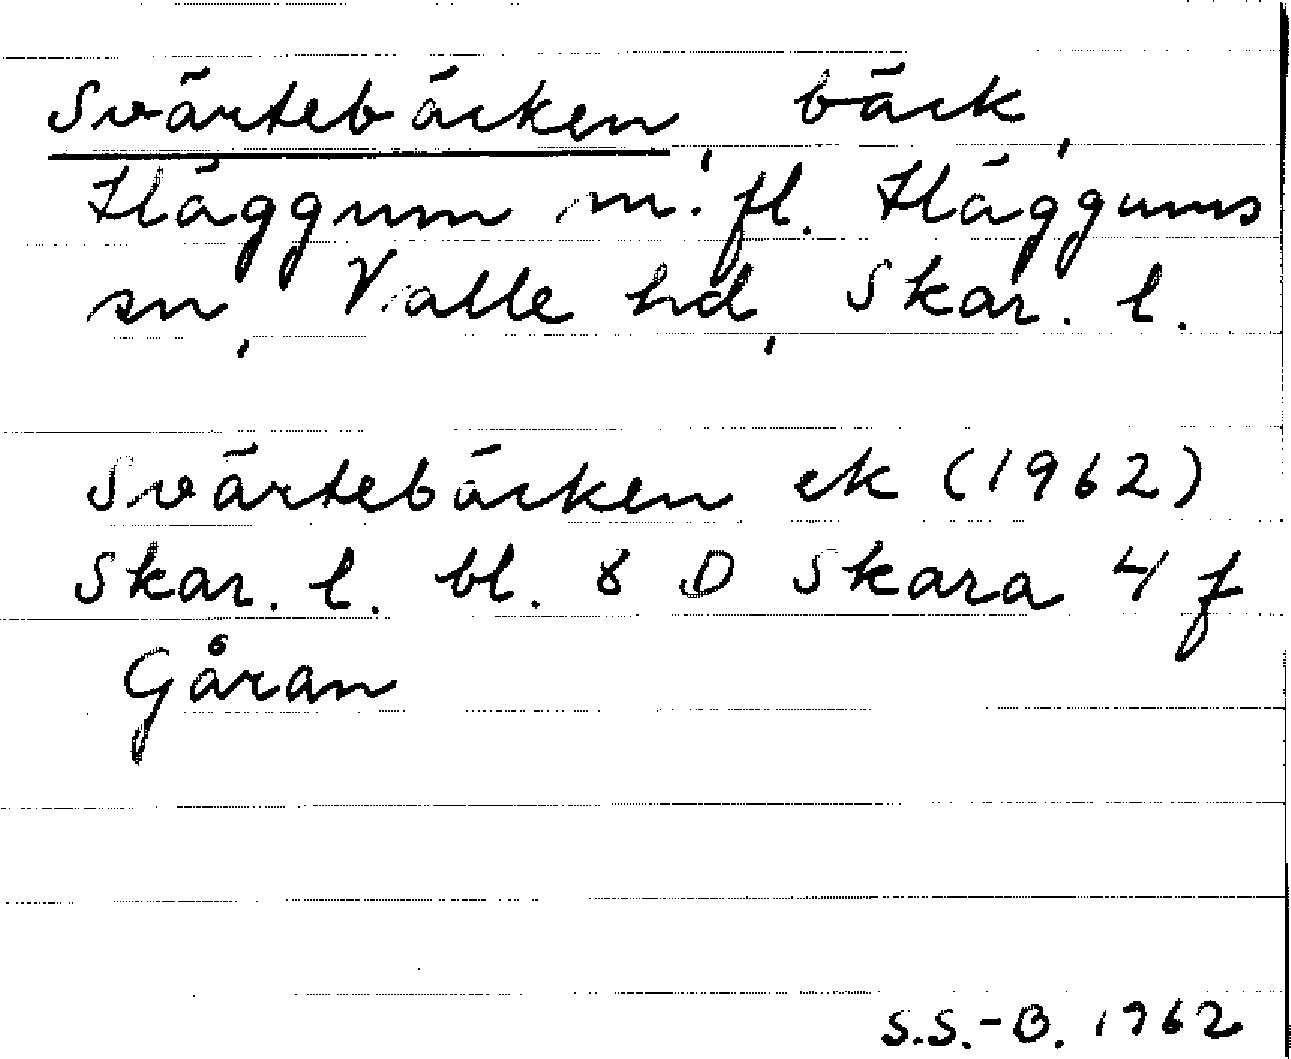 Svärtebäcken, bäck,
Häggum m. fl. Häggums
sn, Valle hd, Skar. l.
Svärtebäcken ek (1962)
Skar. l. bl. 8 D Skara 4 f
Gåran
S.S.-B. 1962